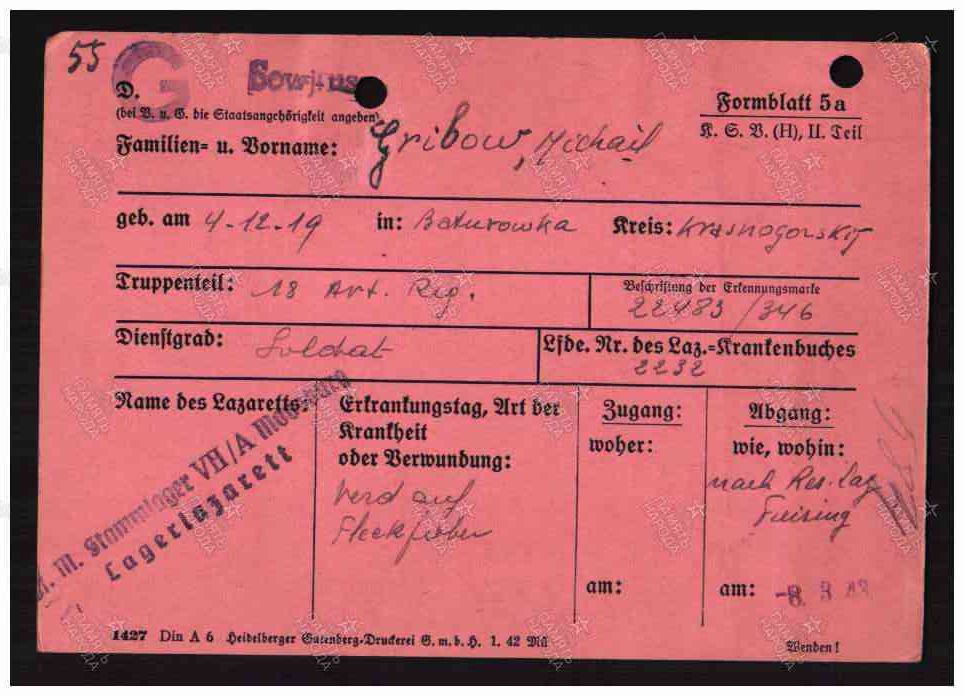 55
G
Sowjtus
D.
(bei V. u. G. die Staatsangehörigkeit angeben)
Formblatt 5a
K. S. V. (H), II. Teil
Familien= u. Vorname: Gribow, Michail
geb. am 4.12.19 in: Baturowka Kreis: Krasnogorskij
Truppenteil: 18 Art. Reg.
Beschriftung der Erkennungsmarke
22483/346
Dienstgrad: Soldat
Lfde. Nr. des Laz.=Krankenbuches
2232
Name des Lazaretts:
M. Stammlager VII/A Moosburg
Lagerlazarett
Erkrankungstag, Art der
Krankheit
oder Verwundung:
Verd auf
Fleckfieber
Zugang:
woher:
am:
Abgang:
wie, wohin:
nach Res. Laz
Freising
am: -8. 3
1427 Din A 6 Heidelberger Gutenberg=Druckerei G. m. b. H. 1. 42 Mü
Wenden!
ПАМЯТЬ НАРОДА